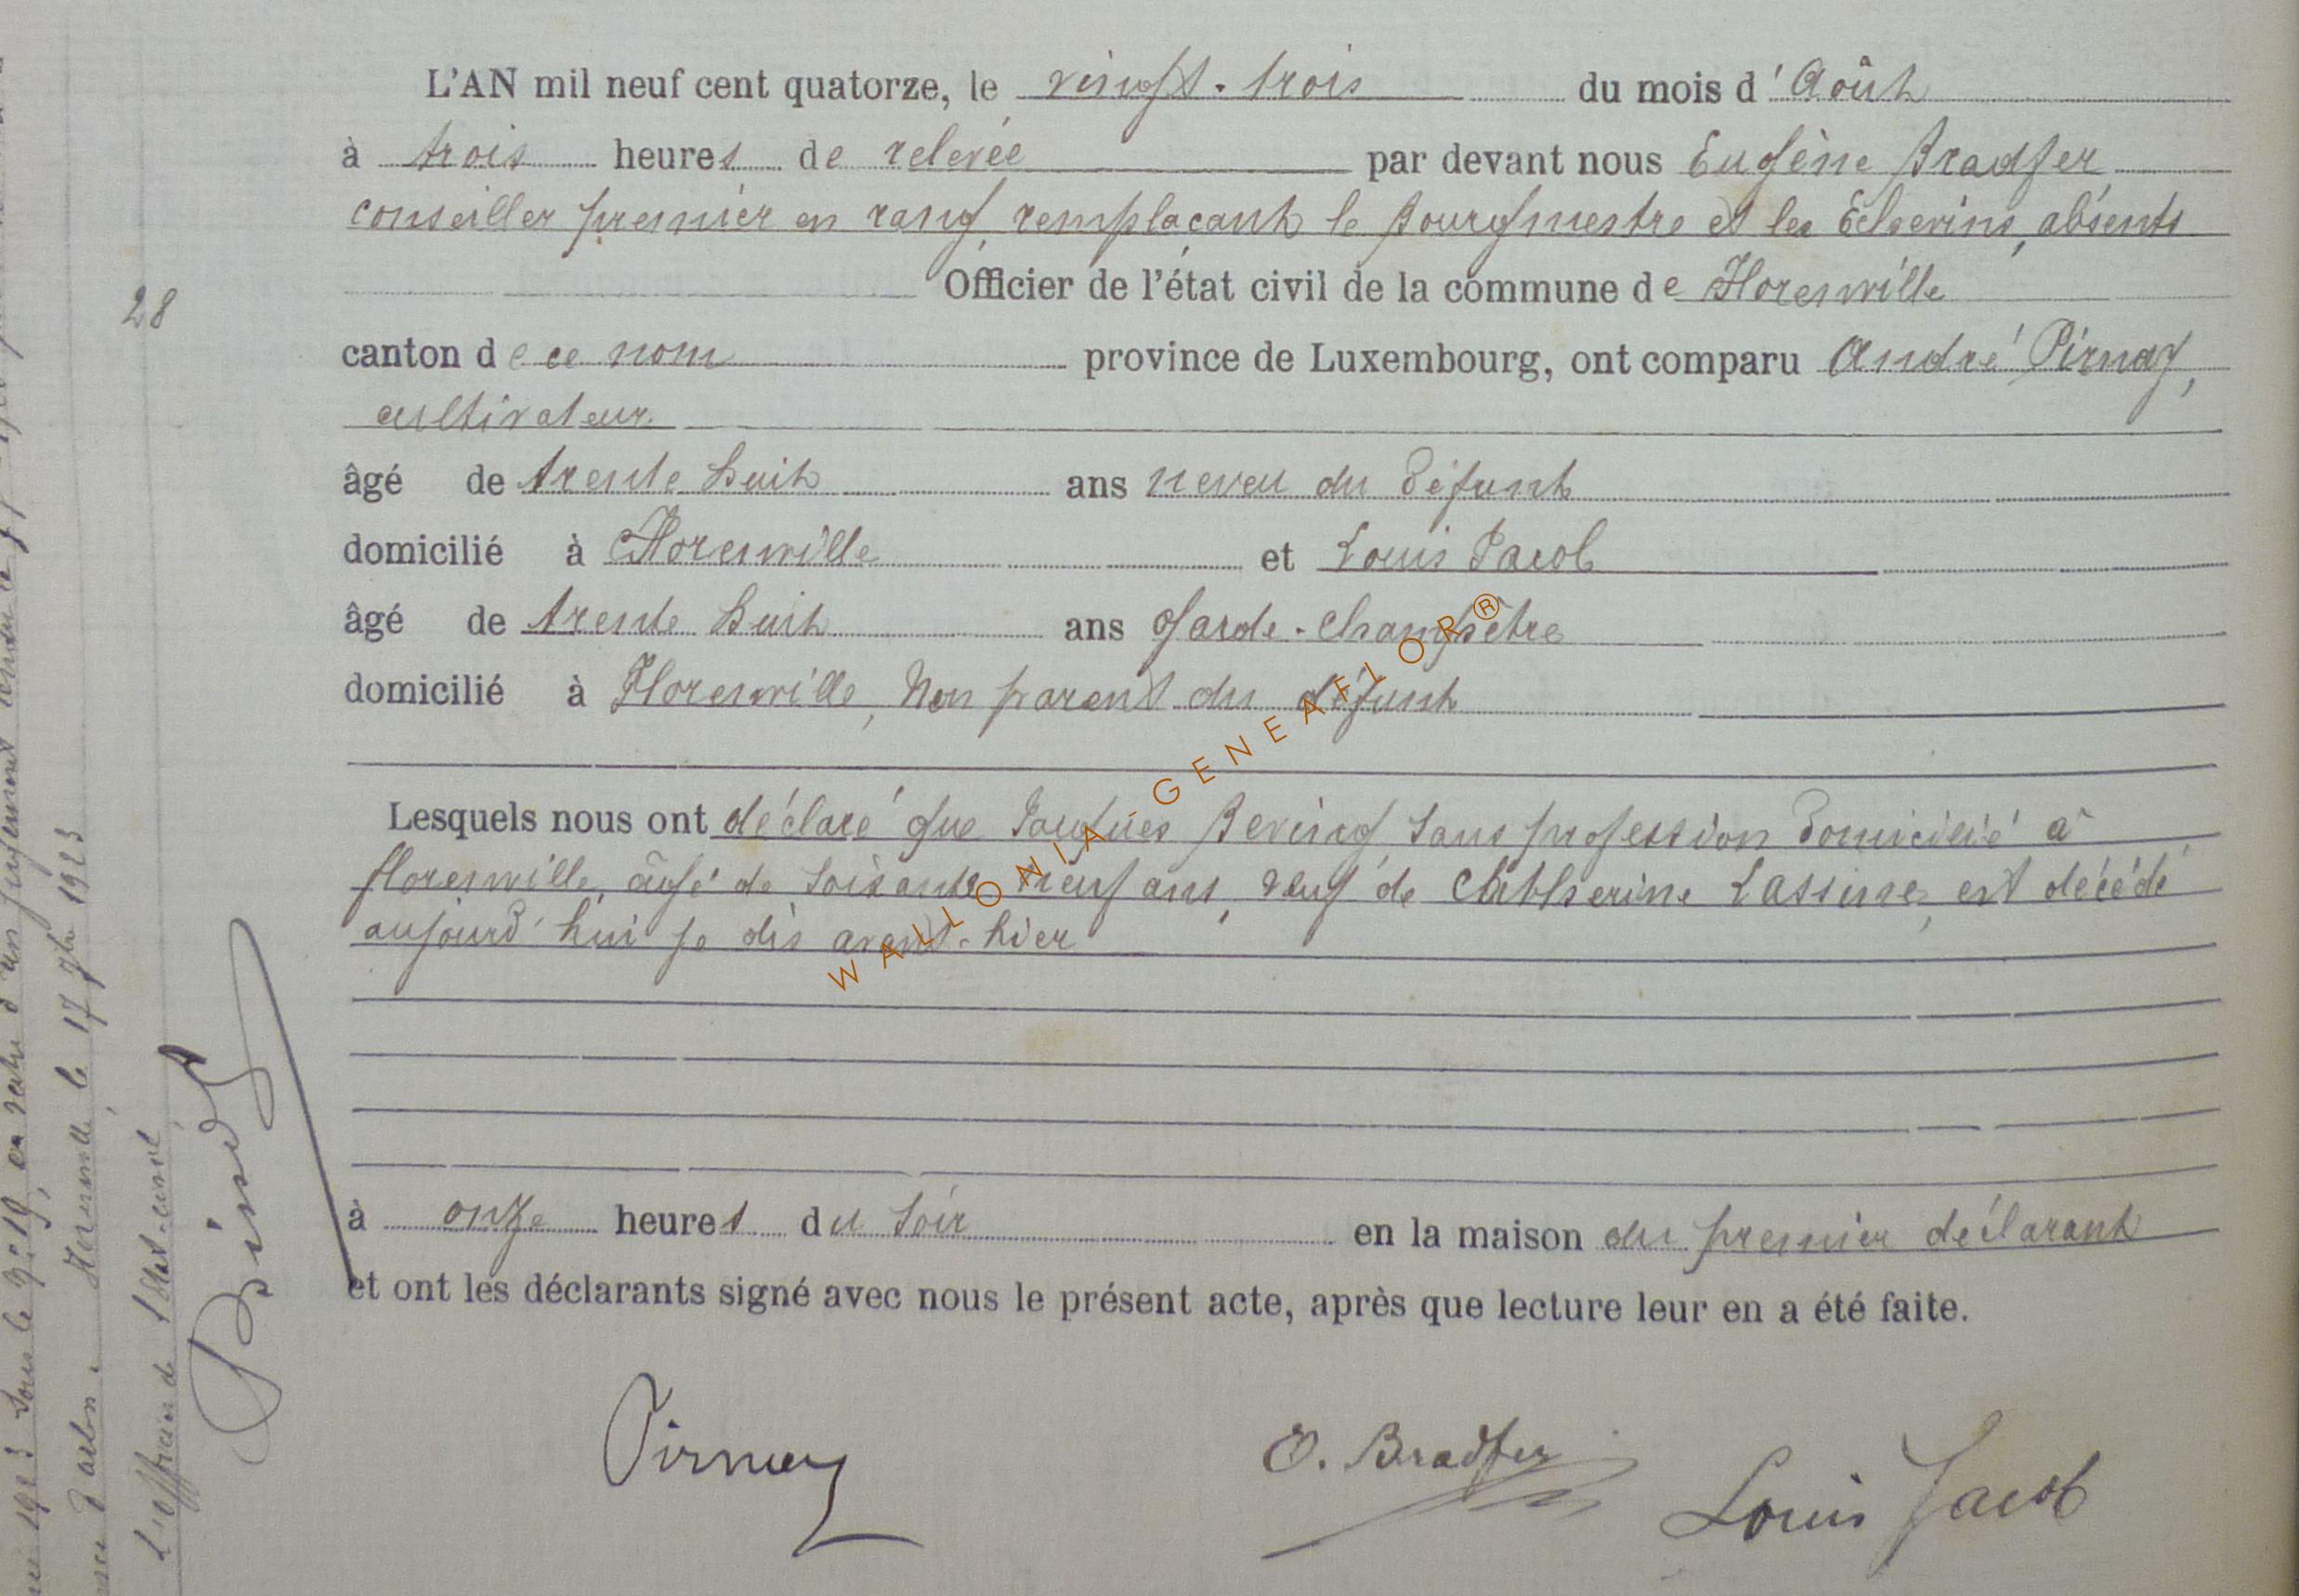 L'AN mil neuf cent quatorze, le vingt-trois du mois d'Août
à trois heures de relevée par devant nous Eugène Bradfer
conseiller premier en rang, remplaçant le Bourgmestre et les Echevins, absents
Officier de l'état civil de la commune de Florenville
28
canton de ce nom province de Luxembourg, ont comparu André Pirnay,
cultivateur.
âgé de trente huit ans neveu du défunt
domicilié à Florenville et Louis Jacob
âgé de trente huit ans Garde-Champêtre
domicilié à Florenville, Non parent du défunt
Lesquels nous ont déclaré que Jacques Beving sans profession domicilié à
florenville, âgé de soixante neuf ans, veuf de Catherine Lassine, est décédé
aujourd'hui je dis avant-hier
à onze heures du soir en la maison du premier déclarant
et ont les déclarants signé avec nous le présent acte, après que lecture leur en a été faite.
Pirnay
E. Bradfer
Louis Jacob
WALLONIA-GENEAFLOR®
en vertu d'un jugement
1923 sous le N° 19,
d'arlon. Florenville, le 17 7bre 1923
L'officier de l'Etat-civil